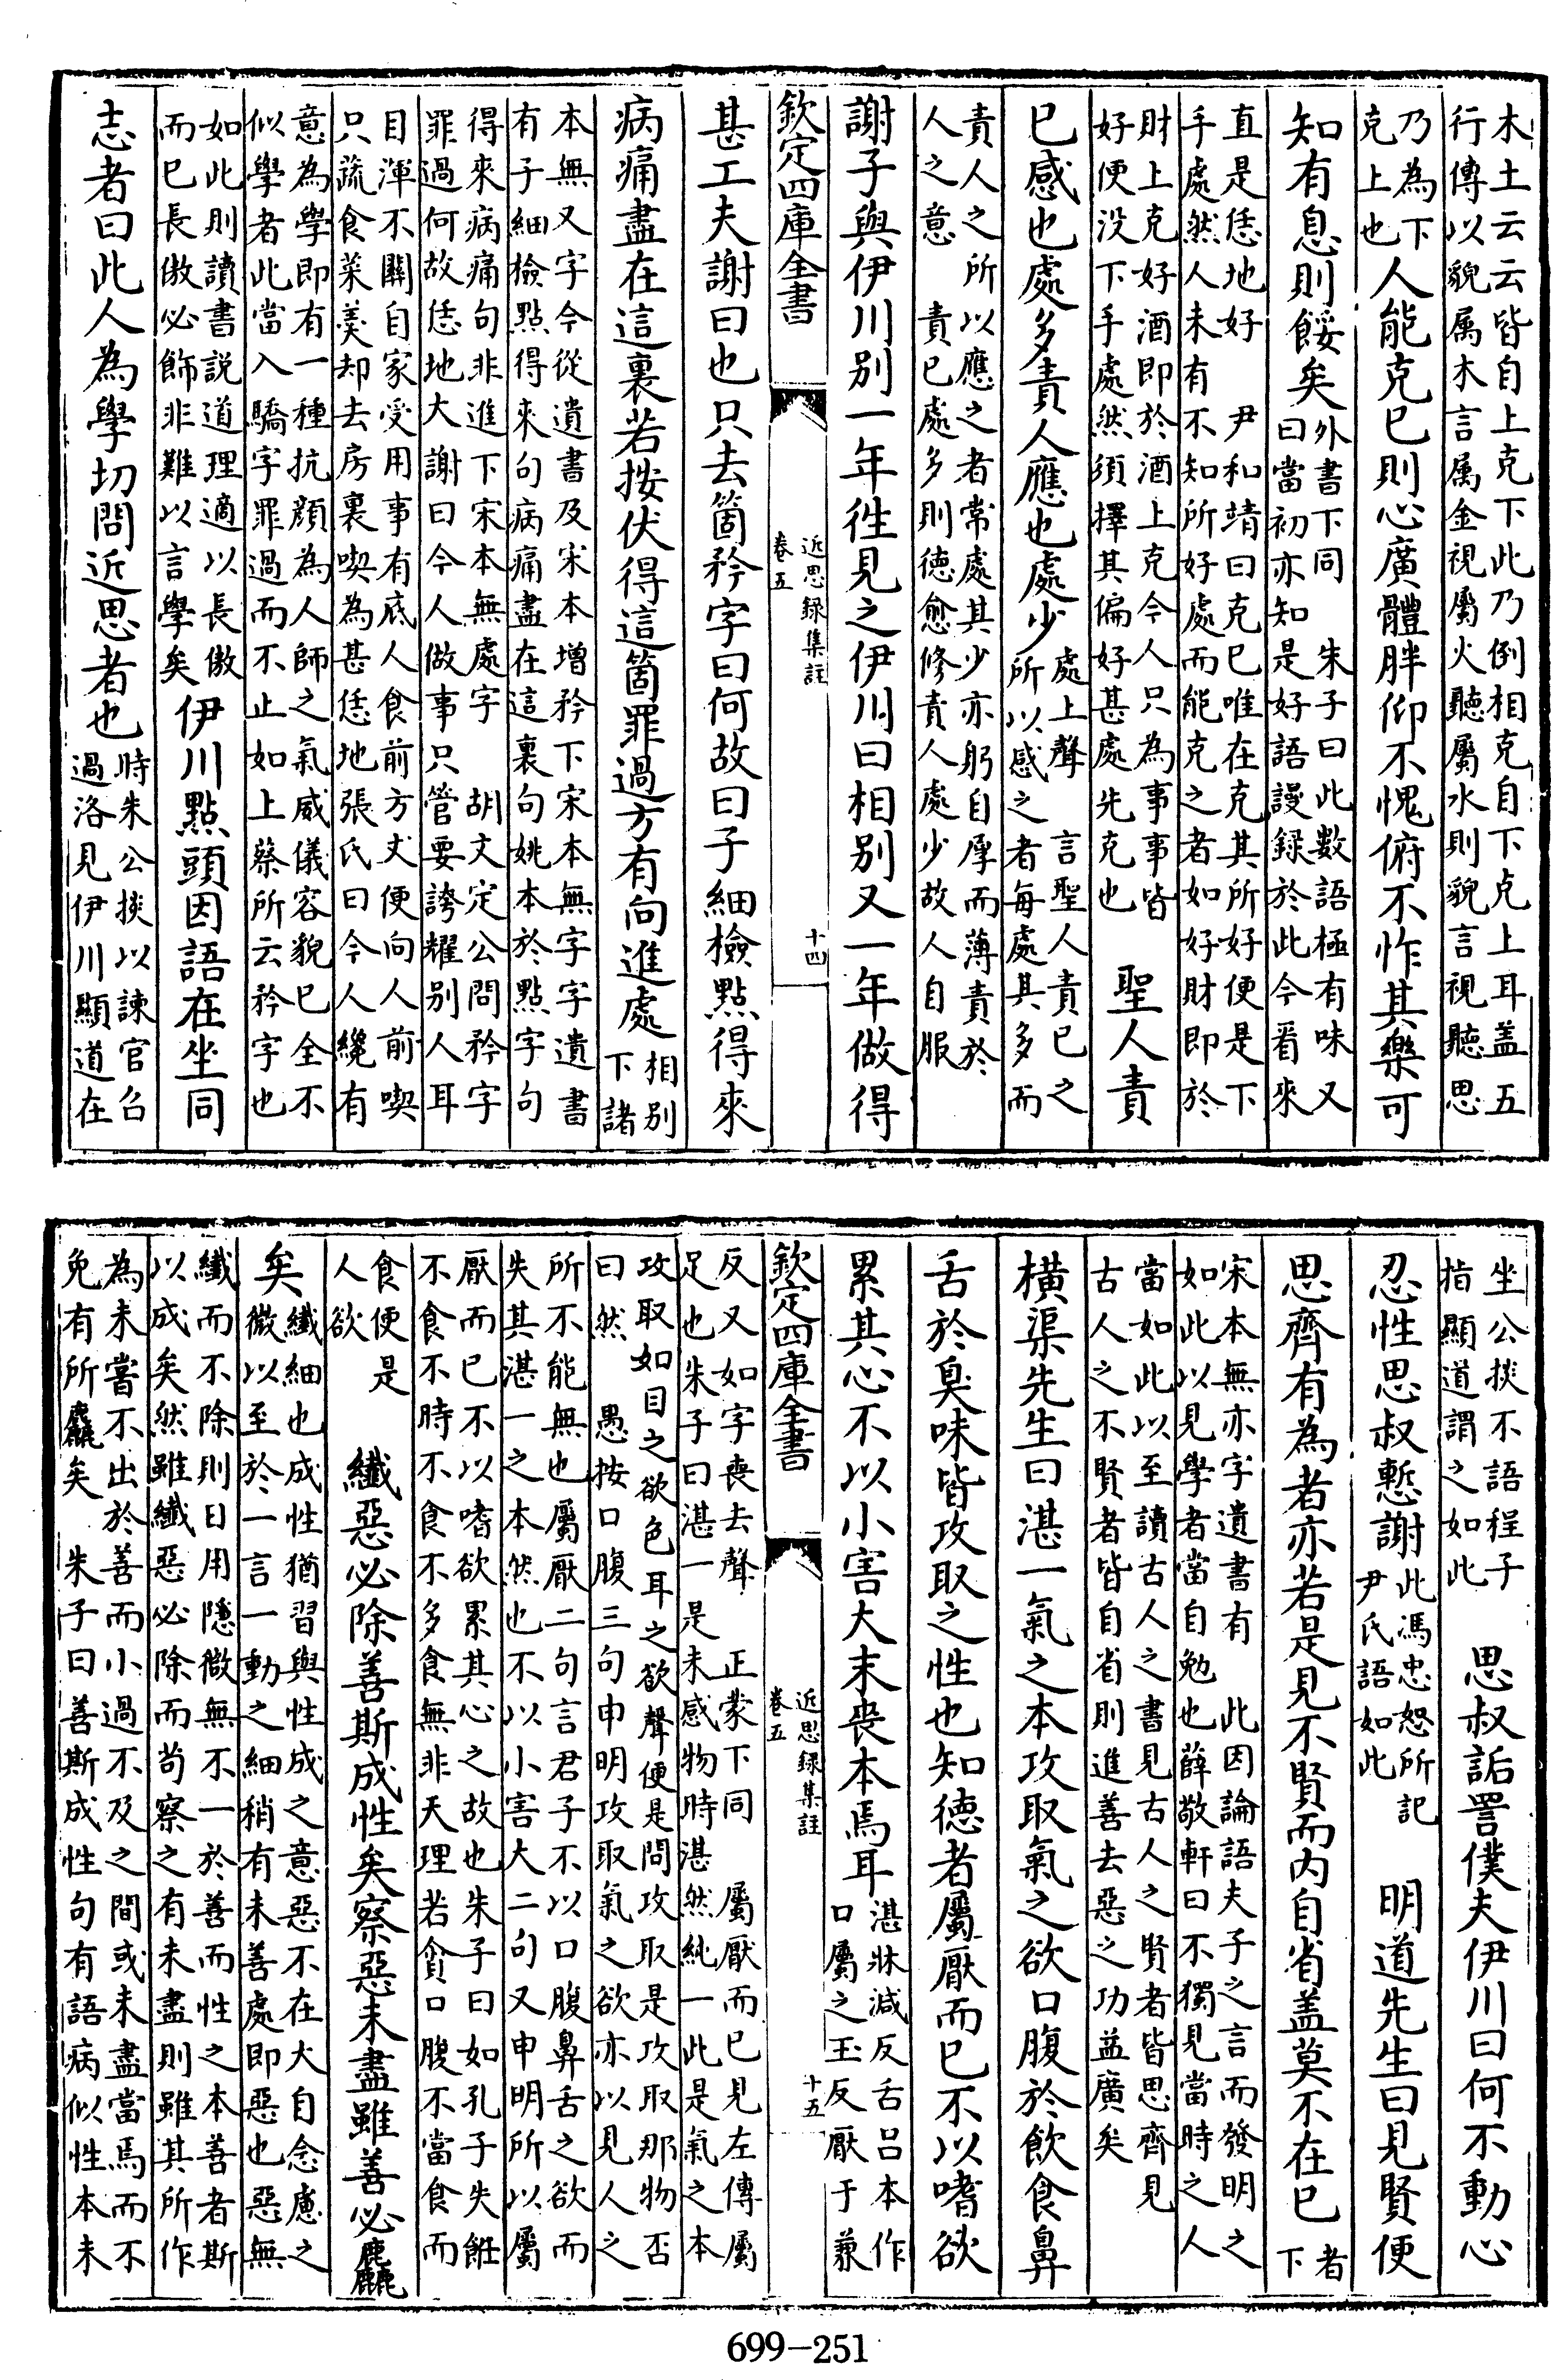 木土云云皆自上克下此乃倒相克自下克上耳盖五
行傳以貌属木言属金視屬火聽屬水則貌言視聽思
乃為下
克上也
人能克已則心廣體胖仰不愧俯不怍其樂可
知有息則餒矣
外書下同　朱子曰此數語極有味又
曰當初亦知是好語謾録於此今㸔來
直是恁地好　尹和靖曰克已唯在克其所好便是下
手處然人未有不知所好處而能克之者如好財即於
財上克好酒即於酒上克今人只為事事皆
好便没下手處然須擇其偏好甚處先克也
聖人責
已感也處多責人應也處少
處上聲　言聖人責已之
所以感之者每處其多而
責人之所以應之者常處其少亦躬自厚而薄責於
人之意　責已處多則德愈修責人處少故人自服
謝子與伊川别一年徃見之伊川曰相别又一年做得
欽定四庫全書
近思録集註
卷五
十四
甚工夫謝曰也只去箇矜字曰何故曰子細檢點得來
病痛盡在這裏若按伏得這箇罪過方有向進處
相别
下諸
本無又字今從遺書及宋本增矜下宋本無字字遺書
有子細檢點得來句病痛盡在這裏句姚本於點字句
得來病痛句非進下宋本無處字　胡文定公問矜字
罪過何故恁地大謝曰今人做事只管要誇耀别人耳
目渾不關自家受用事有底人食前方丈便向人前喫
只蔬食菜羮却去房裏喫為甚恁地張氏曰今人纔有
意為學即有一種抗顔為人師之氣威儀容貌已全不
似學者此當入驕字罪過而不止如上蔡所云矜字也
如此則讀書説道理適以長傲
而已長傲必飾非難以言學矣
伊川點頭因語在坐同
志者曰此人為學切問近思者也
時朱公掞以諫官召
過洛見伊川顯道在
坐公掞不語程子
指顯道謂之如此
思叔詬詈僕夫伊川曰何不動心
忍性思叔慙謝
此馮忠恕所記
尹氏語如此
明道先生曰見賢便
思齊有為者亦若是見不賢而内自省盖莫不在已
者
下
宋本無亦字遺書有　此因論語夫子之言而發明之
如此以見學者當自勉也薛敬軒曰不獨見當時之人
當如此以至讀古人之書見古人之賢者皆思齊見
古人之不賢者皆自省則進善去惡之功益廣矣
横渠先生曰湛一氣之本攻取氣之欲口腹於飲食鼻
舌於臭味皆攻取之性也知德者屬厭而已不以嗜欲
累其心不以小害大末喪本焉耳
湛牀減反舌吕本作
口屬之玉反厭于兼
欽定四庫全書
近思録集註
卷五
十五
反又如字喪去聲　正蒙下同　屬厭而已見左傳屬
足也朱子曰湛一是未感物時湛然純一此是氣之本
攻取如目之欲色耳之欲聲便是問攻取是攻取那物否
曰然　愚按口腹三句申明攻取氣之欲亦以見人之
所不能無也屬厭二句言君子不以口腹鼻舌之欲而
失其湛一之本然也不以小害大二句又申明所以屬
厭而已不以嗜欲累其心之故也朱子曰如孔子失飪
不食不時不食不多食無非天理若貪口腹不當食而
食便是
人欲
纎惡必除善斯成性矣察惡未盡雖善必麤
矣
纎細也成性猶習與性成之意惡不在大自念慮之
微以至於一言一動之細稍有未善處即惡也惡無
纎而不除則日用隱微無不一於善而性之本善者斯
以成矣然雖纎惡必除而苟察之有未盡則雖其所作
為未嘗不出於善而小過不及之間或未盡當焉而不
免有所麤矣　朱子曰善斯成性句有語病似性本未
699—251